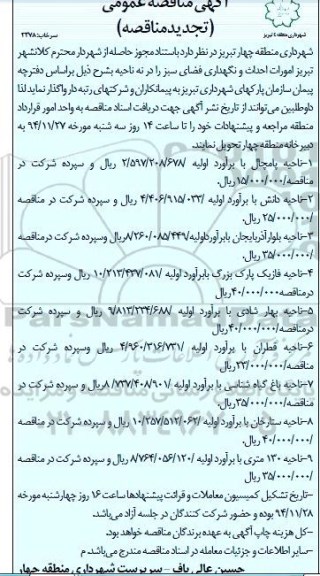 آگهی مناقصه عمومی
(تجدیدمناقصه)
شهرداری منطقه ۴ تبریز
سرخاب: ۲۲۷۸
شهرداری منطقه چهار تبریز در نظر دارد باستناد مجوز حاصله از شهردار محترم کلانشهر
تبریز امورات احداث و نگهداری فضای سبز را در نه ناحیه بشرح ذیل براساس دفترچه
پیمان سازمان پارکهای شهرداری تبریز به پیمانکاران و شرکتهای رتبه دار واگذار نماید لذا
داوطلبین می‌توانند از تاریخ نشر آگهی جهت دریافت اسناد مناقصه به واحد امور قرارداد
منطقه مراجعه و پیشنهادات خود را تا ساعت ۱۴ روز سه شنبه مورخه ۹۴/۱۱/۲۷ به
دبیرخانه منطقه چهار تحویل نمایند.
۱-ناحیه یامچال با برآورد اولیه /۲/۵۹۷/۲۰۸/۶۷۸ ریال و سپرده شرکت در
مناقصه/۱۵/۰۰۰/۰۰۰ ریال.
۲-ناحیه دانش با برآورد اولیه /۴/۴۰۶/۹۱۵/۰۳۳ ریال و سپرده شرکت در مناقصه
/۲۵/۰۰۰/۰۰۰ ریال.
۳-ناحیه بلوار آذربایجان بابرآورداولیه/۸/۲۶۰/۰۸۵/۴۴۹ریال وسپرده شرکت درمناقصه
/۳۵/۰۰۰/۰۰۰ریال.
۴-ناحیه فازیک پارک بزرگ بابرآورد اولیه /۱۰/۲۱۳/۴۳۷/۰۸۱ ریال وسپرده شرکت
درمناقصه/۴۰/۰۰۰/۰۰۰ریال
۵-ناحیه بهار شادی با برآورد اولیه /۹/۸۱۳/۲۳۴/۶۸۸ ریال و سپرده شرکت
درمناقصه/۴۰/۰۰۰/۰۰۰ریال
۶-ناحیه قطران با برآورد اولیه /۴/۹۶۰/۳۱۶/۷۳۱ ریال و سپرده شرکت در
مناقصه/۲۳/۰۰۰/۰۰۰ریال.
۷-ناحیه باغ گیاه شناسی با برآورد اولیه /۸/۷۳۷/۴۰۸/۹۰۱ریال وسپرده شرکت در
مناقصه/۳۵/۰۰۰/۰۰۰ریال.
۸-ناحیه ستارخان با برآورد اولیه /۱۰/۲۵۷/۵۱۲/۰۶۲ ریال و سپرده شرکت در مناقصه
/۴۰/۰۰۰/۰۰۰ ریال.
۹-ناحیه ۱۳۰ متری با برآورد اولیه /۸/۷۶۴/۰۵۶/۱۲۰ ریال و سپرده شرکت در مناقصه
/۳۵/۰۰۰/۰۰۰ ریال
-تاریخ تشکیل کمیسیون معاملات و قرائت پیشنهادها ساعت ۱۶ روز چهارشنبه مورخه
۹۴/۱۱/۲۸ بوده و حضور شرکت کنندگان در جلسه آزاد می‌باشد.
-کل هزینه چاپ آگهی به عهده برندگان مناقصه خواهد بود.
-سایر اطلاعات و جزئیات معامله در اسناد مناقصه مندرج می‌باشد. م
حسین عالی باف - سرپرست شهرداری منطقه چهار